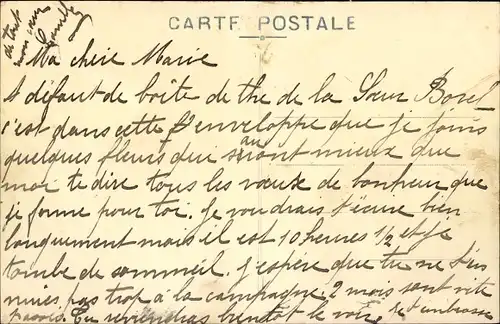 CARTE POSTALE
Ma chère Marie
A défaut de boîte de thé de la Sœur Borel
c'est dans cette enveloppe que je joins
quelques fleurs qui sauront mieux que
moi te dire tous les vœux de bonheur que
je forme pour toi. Je voudrais t'écrire bien
longuement mais il est 10 heures 1/2 et je
tombe de sommeil. J'espère que tu ne t'en
nuies pas trop à la campagne, 2 mois sont vite
passés. Tu reviendras bientôt le voir. Je t'embrasse
de tout
mon cœur
Camille